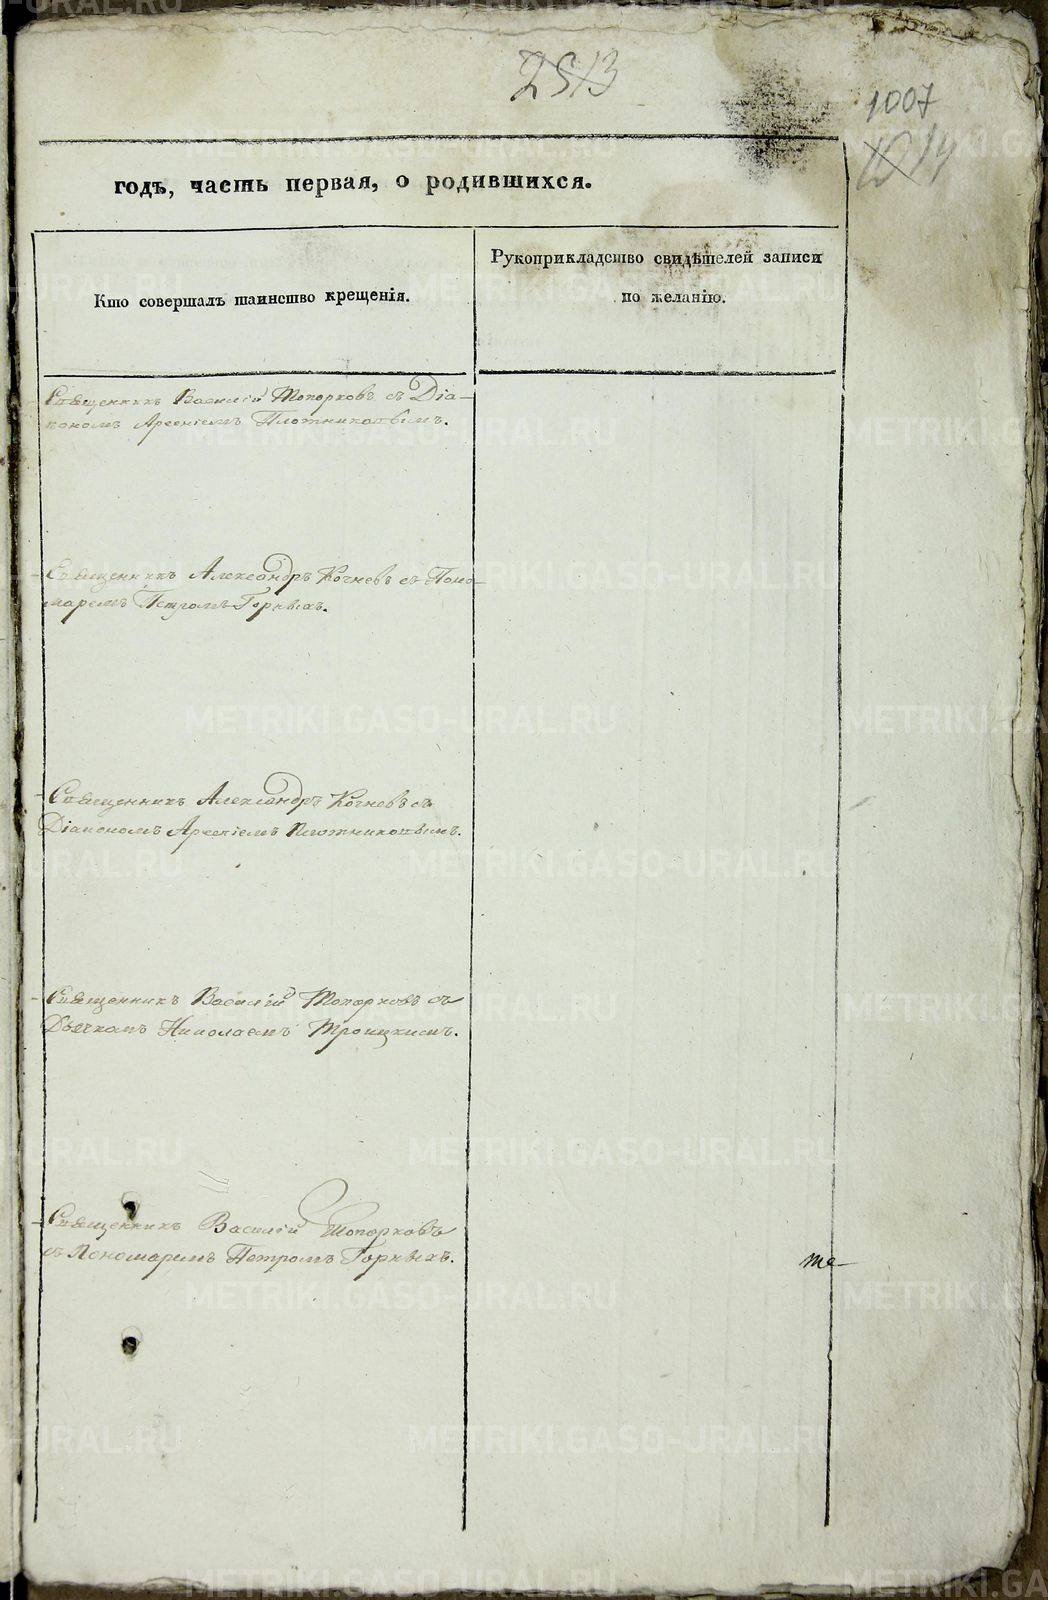 2513
1007
1014
годъ, часть первая, о родившихся.
Кто совершалъ таинство крещенія.
Рукоприкладство свидѣтелей записи
по желанію.
Священникъ Василій Топорковъ съ Діа-
кономъ Арсеніемъ Плотниковымъ.
Священникъ Александръ Кочневъ съ Поно-
маремъ Петромъ Горныхъ.
Священникъ Александръ Кочневъ съ
Діакономъ Арсеніемъ Плотниковымъ.
Священникъ Василій Топорковъ съ
Дьячкамъ Николаемъ Троицкимъ.
Священникъ Василій Топорковъ
съ Пономаремъ Петромъ Горныхъ.
те-
METRIKI.GASO-URAL.RU